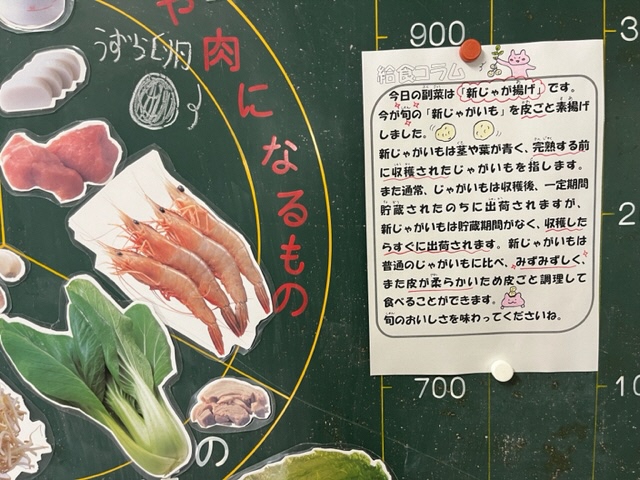 や肉になるもの
うずら
の
900
700
3
2
10
給食コラム
今日の副菜は「新じゃが揚げ」です。
今が旬の「新じゃがいも」を皮ごと素揚げ
しました。
新じゃがいもは茎や葉が青く、完熟する前
に収穫されたじゃがいもを指します。
また通常、じゃがいもは収穫後、一定期間
貯蔵されたのちに出荷されますが、
新じゃがいもは貯蔵期間がなく、収穫した
らすぐに出荷されます。新じゃがいもは
普通のじゃがいもに比べ、みずみずしく、
また皮が柔らかいため皮ごと調理して
食べることができます。
旬のおいしさを味わってくださいね。